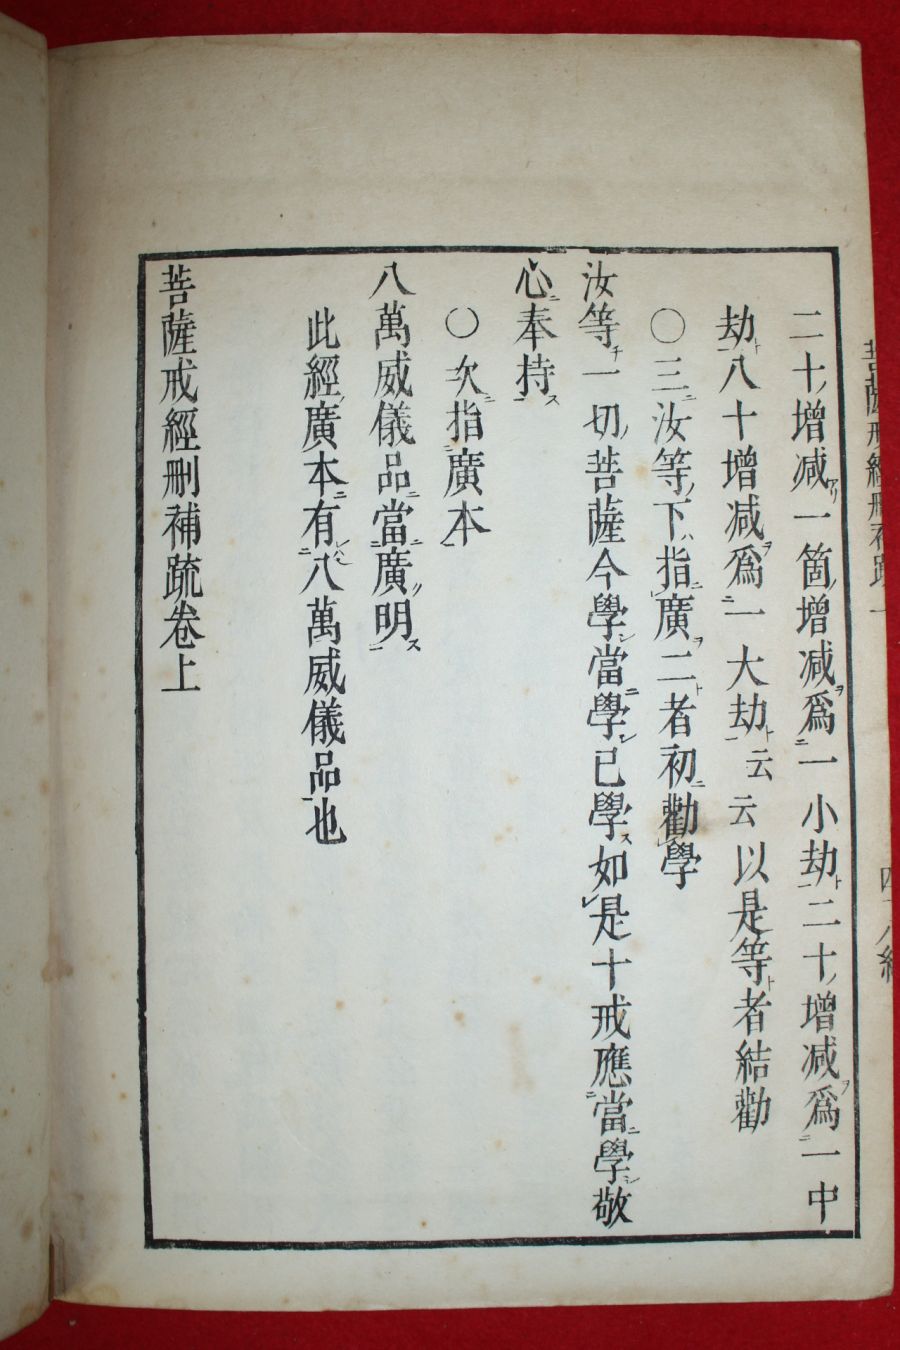 二十增減一箇增減爲一小劫二十增減爲一中
劫八十增減爲一大劫云云以是等者結勸
○三汝等下指廣二者初勸學
汝等一切菩薩今學當學已學如是十戒應當學敬
心奉持
○次指廣本
八萬威儀品當廣明
此經廣本有八萬威儀品也
菩薩戒經刪補疏卷上